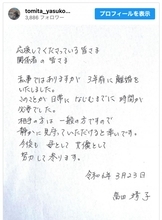 tomita_yasuko...
3,886 フォロワー
プロフィールを表示
応援してくださっている皆さま
関係者の皆さま
私事ではありますが 3年前に離婚を
いたしました。
このことが日常になじむまでに 時間が
必要でした。
相手の方は一般の方ですので
静かに見守っていただけると幸いです。
今後も 母として 女優として
努力して参ります。
令和6年 3月23日
富田 靖子